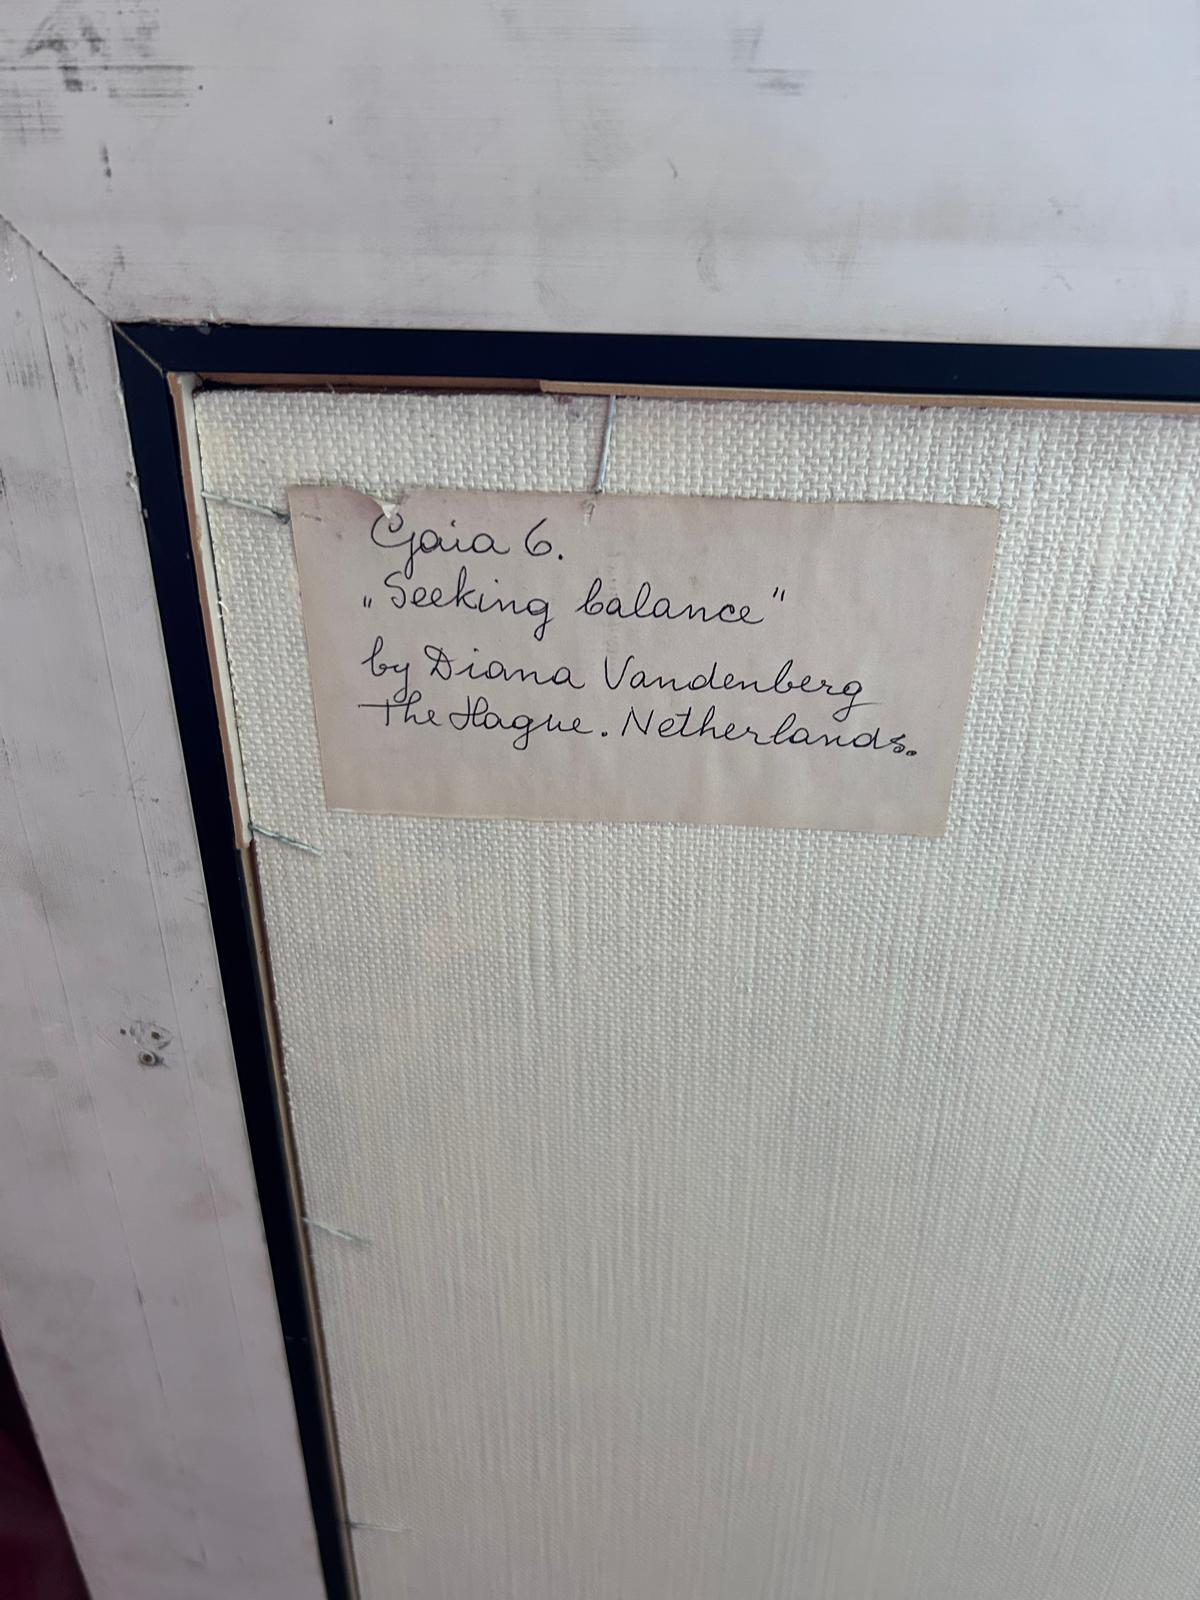 Gaia 6.
„Seeking balance"
by Diana Vandenberg
The Hague. Netherlands.